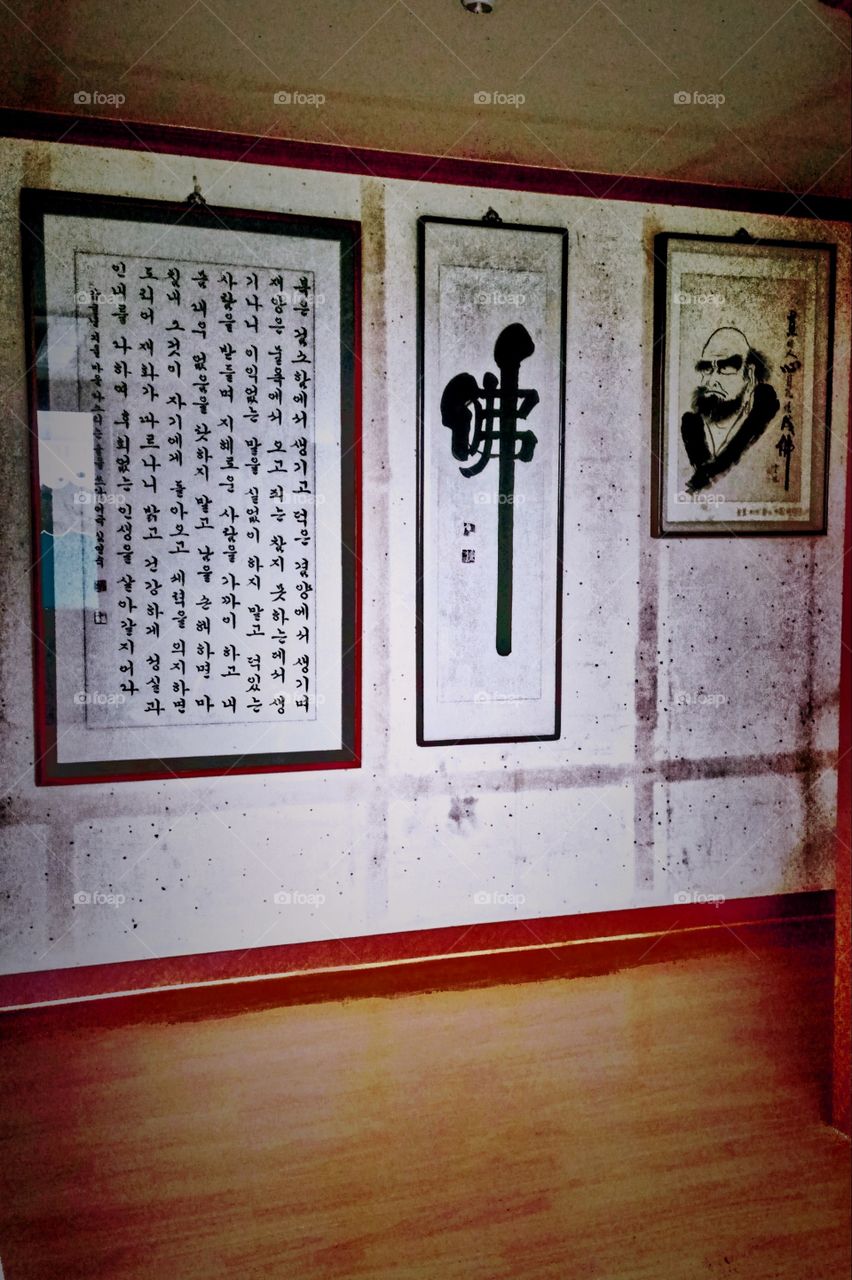 foap foap foap foap
복은 검소함에서 생기고 덕은 겸양에서 생기며
재앙은 물욕에서 오고 죄는 참지 못하는데서 생
기나니 이의없는 말을 실없이 하지 말고 덕있는
사람을 받들며 지혜로운 사람을 가까이 하고 내
몸 대우 없음을 탓하지 말고 남을 손해하면 마
침내 그것이 자기에게 돌아오고 세력을 의지하면
도리어 재화가 따르나니 밝고 건강하게 성실과
인내를 다하여 후회없는 인생을 살아갈지어다
佛
直指人心見性成佛
foap foap foap foap
foap foap foap foap
foap foap foap foap
foap foap foap foap